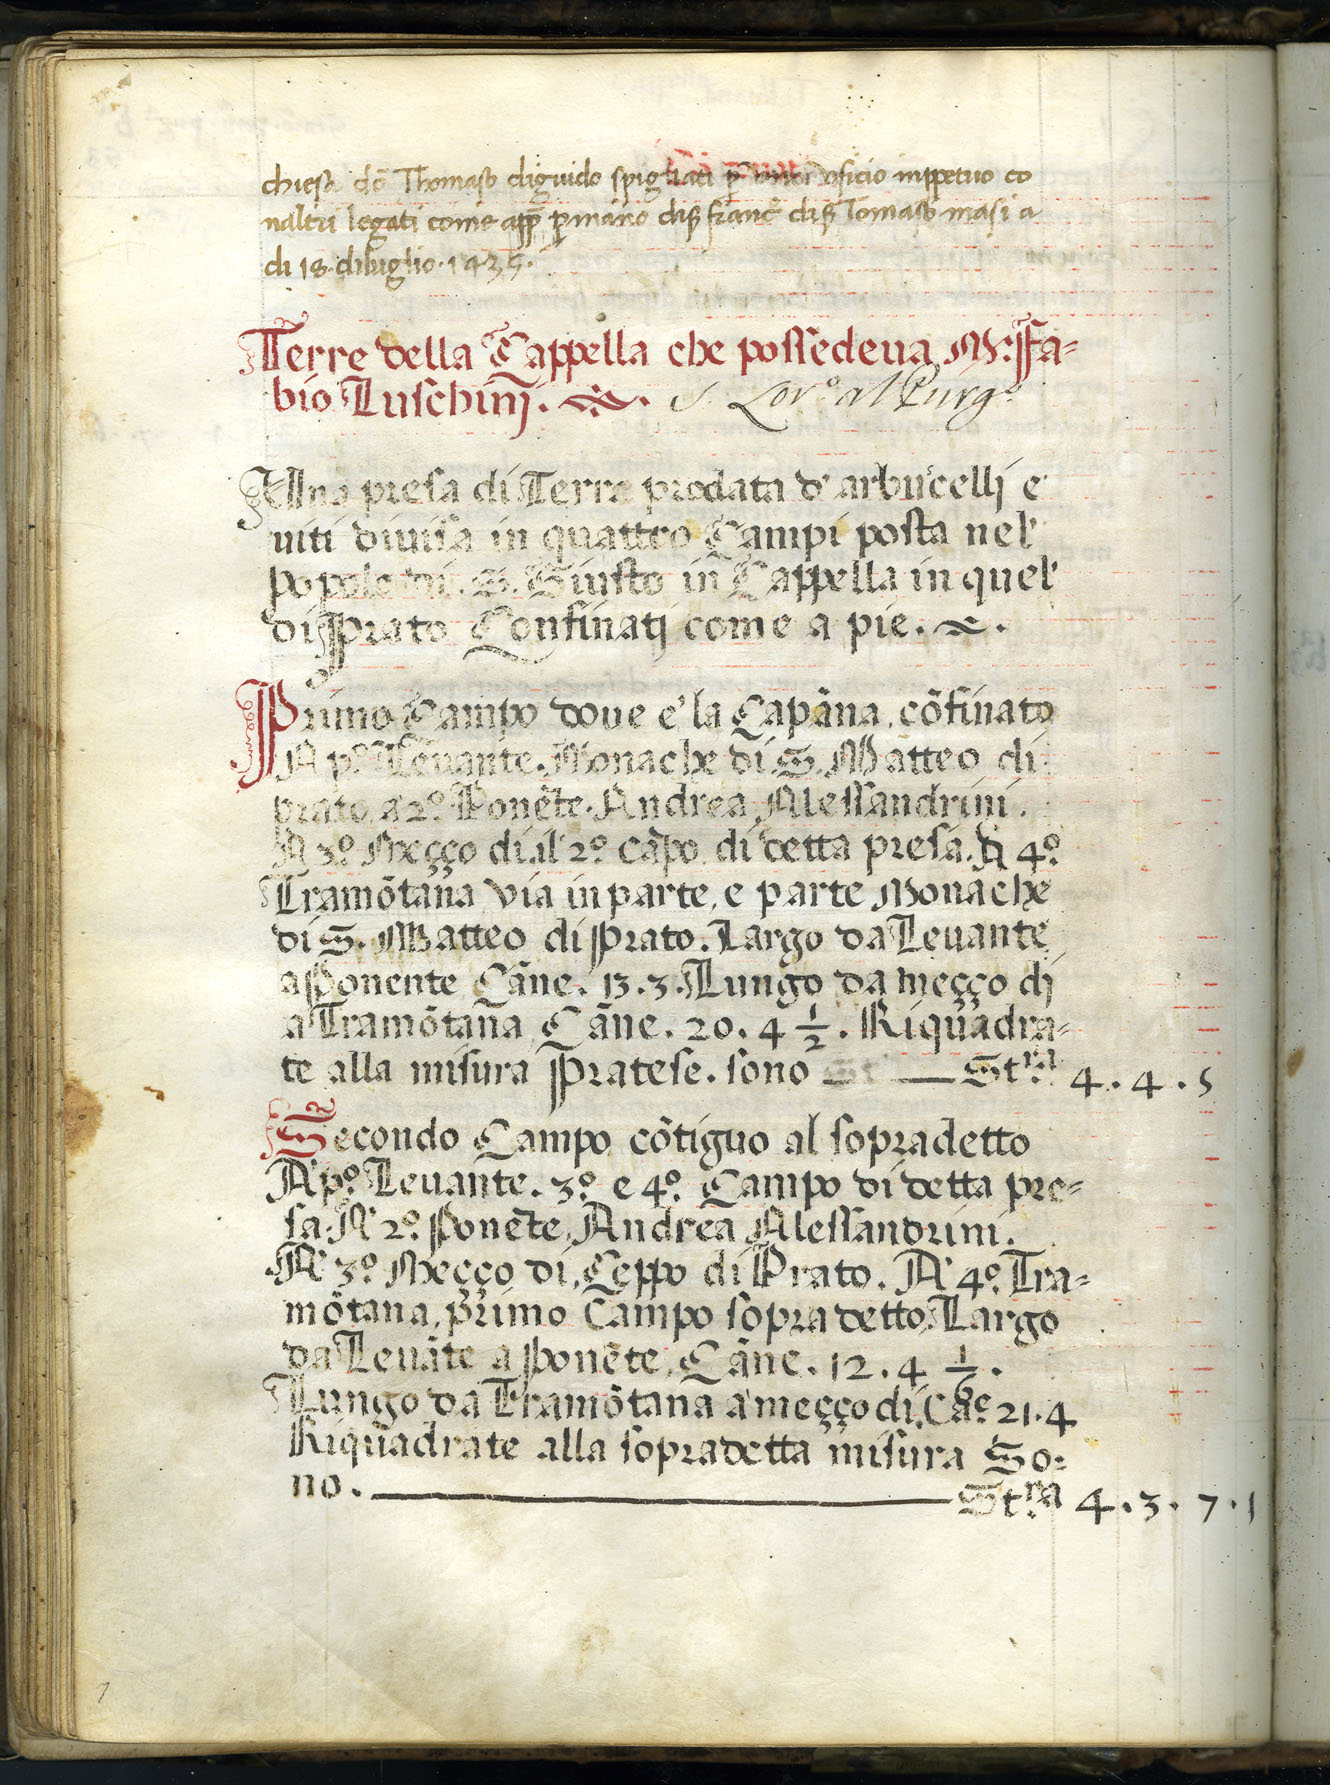 chiesa dō Thomaso diguido spigliati p̄ uficio inppetuo co
naltri legati come app̄ p mano di ß franc° di ß Tomaso masi a
di 18 · diluglio · 1435 ·
Terre della Cappella che possedeua M: Fa=
bio Luschinj . S. Lor.º al Purg.º
Una presa di Terra prodata d' arbucelli e'
uiti diuisa in quattro Campi posta nel'
popolo di . S. Giusto in Cappella in quel'
di Prato Confinatj come a pie .
Primo Campo doue e' la Capāna, cōfinato
A pº. Leuante. Monache di S. Matteo di
prato, a 2º. Ponēte. Andrea Alessandrini.
A 3º. Meçço di, il 2º. cāpo di detta presa. A 4º.
Tramōtana via in parte, e parte Monache
di S. Matteo di Prato. Largo da Leuante
a Ponente Cāne. 13. 3. Lungo da meçço di
a Tramōtana Cāne. 20. 4 1/2. Riquadra=
te alla misura Pratese. sono St.ra 4 . 4 . 5
Secondo Campo cōtiguo al sopradetto
A' pº. Leuante. 3º. e 4º. Campo di detta pre=
sa. A' 2º. Ponēte, Andrea Alessandrini.
A' 3º. Meçço di, Ceppo di Prato. A' 4º. Tra=
mōtana, primo Campo sopra detto, Largo
da Leuāte a Ponēte, Cāne. 12. 4 1/6.
Lungo da Tramōtana a' meçço di, Cāe 21. 4
Riquadrate alla sopradetta misura So=
no. St.ra 4 . 3 . 7 . 1